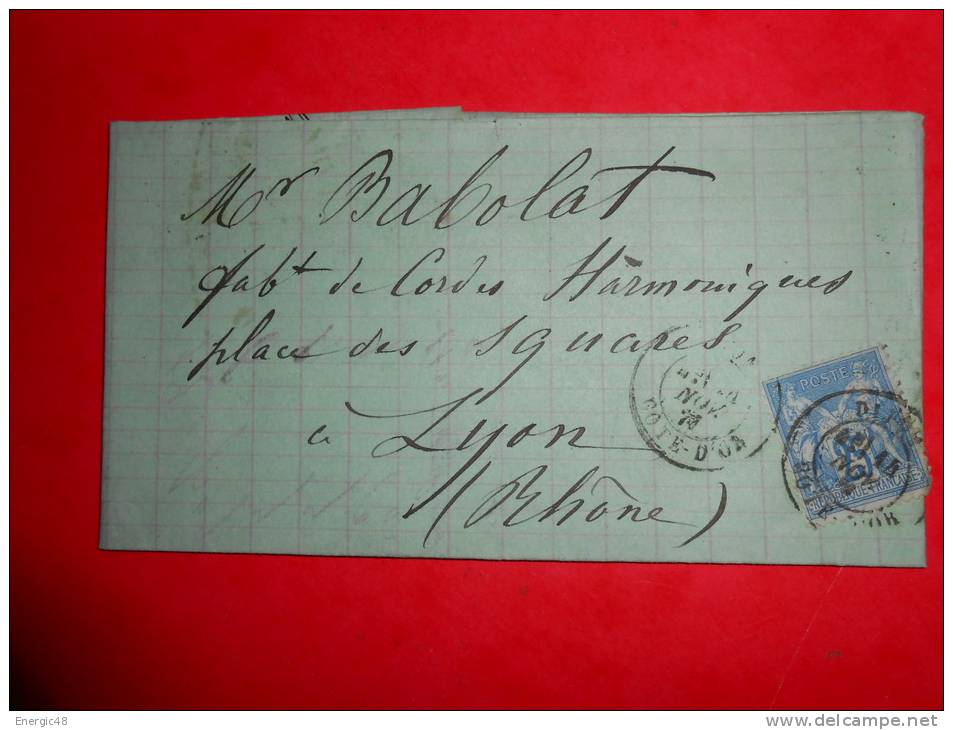 Mr Babolat
fabt de Cordes Harmoniques
place des squares
a Lyon
(Rhône)
NOV.
COTE-D'OR
POSTE
25
REPUBLIQUE FRANCAISE
Energic48
www.delcampe.net